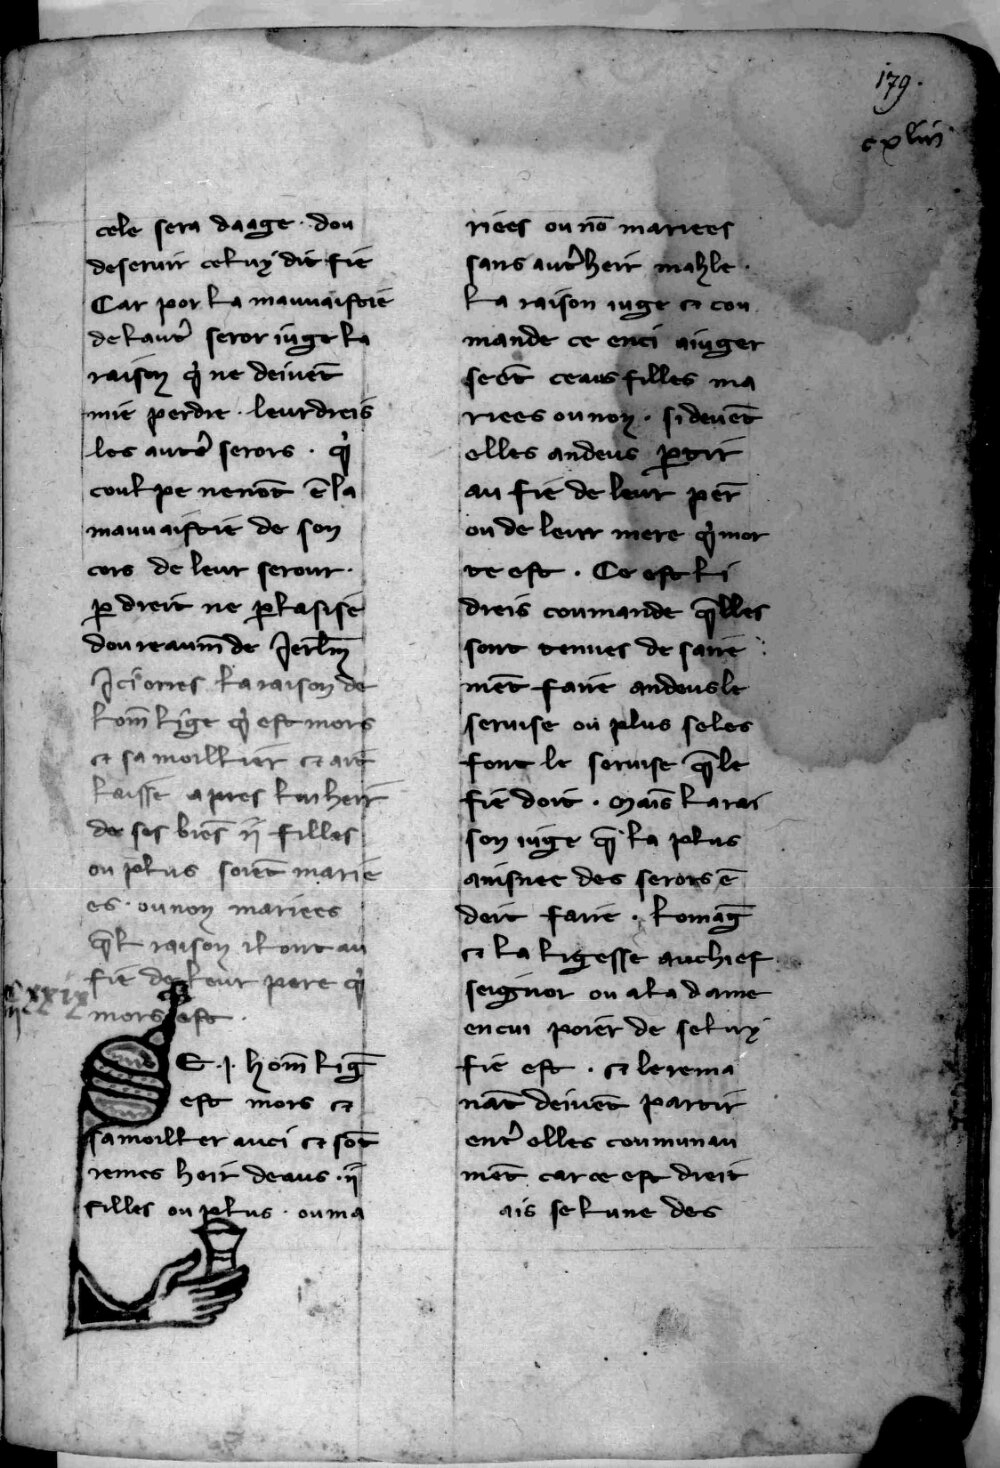 179.
cxliii
cele sera daage · dou
deseruir celuy dit fie
Car por la mauuaistie
de laut̾ seror iuge la
raison q̾ ne deiuēt
mie perdre · leur dreis
les aut̾s serors · q̾
coulpe nenōt ē la
mauuaistie de son
cors de leur serour ·
ꝑ dreit ne ꝑ lasise
dou reaum̄ de Jerlm̄
Jci orres la raison de
lom̄ lige q̾ est mors
et sa moillier et ait
laisse apres lui heir
de ses biēs ·ij· filles
ou plus soiēt marie
es · ou non mariees
q̄l raison il ont au
fie de leur pere q̾
mors est ·
CXXIX
S E ·j· hom̄ liḡ
est mors et
sa moillier auci et sōt
remes heir deaus ·ij·
filles ou plus · ou ma
riees ou nō mariees
sans aut̾ heir mahle ·
la raison iuge et cou
mande ce enci aiuger
se sōt ceaus filles ma
riees ou non · si deuēt
elles andeus ꝑtir
au fie de leur per̄
ou de leur mere q̾ mor
te est · Ce est li
dreis coumande q̄lles
sont tenues de saine
mēt faire andeus le
seruise ou plus se les
font le seruise q̄ le
fie doit · Mais la rai
son iuge q̄ la plus
ainsnee des serors ē
deit faire · lomaḡ
et la ligesse au chief
seignor ou a la dame
en cui poier de seluy
fie est · et le rema
nāt deiuēt partir
ent̾ elles coumunau
mēt car ce est dreit
ais se lune des